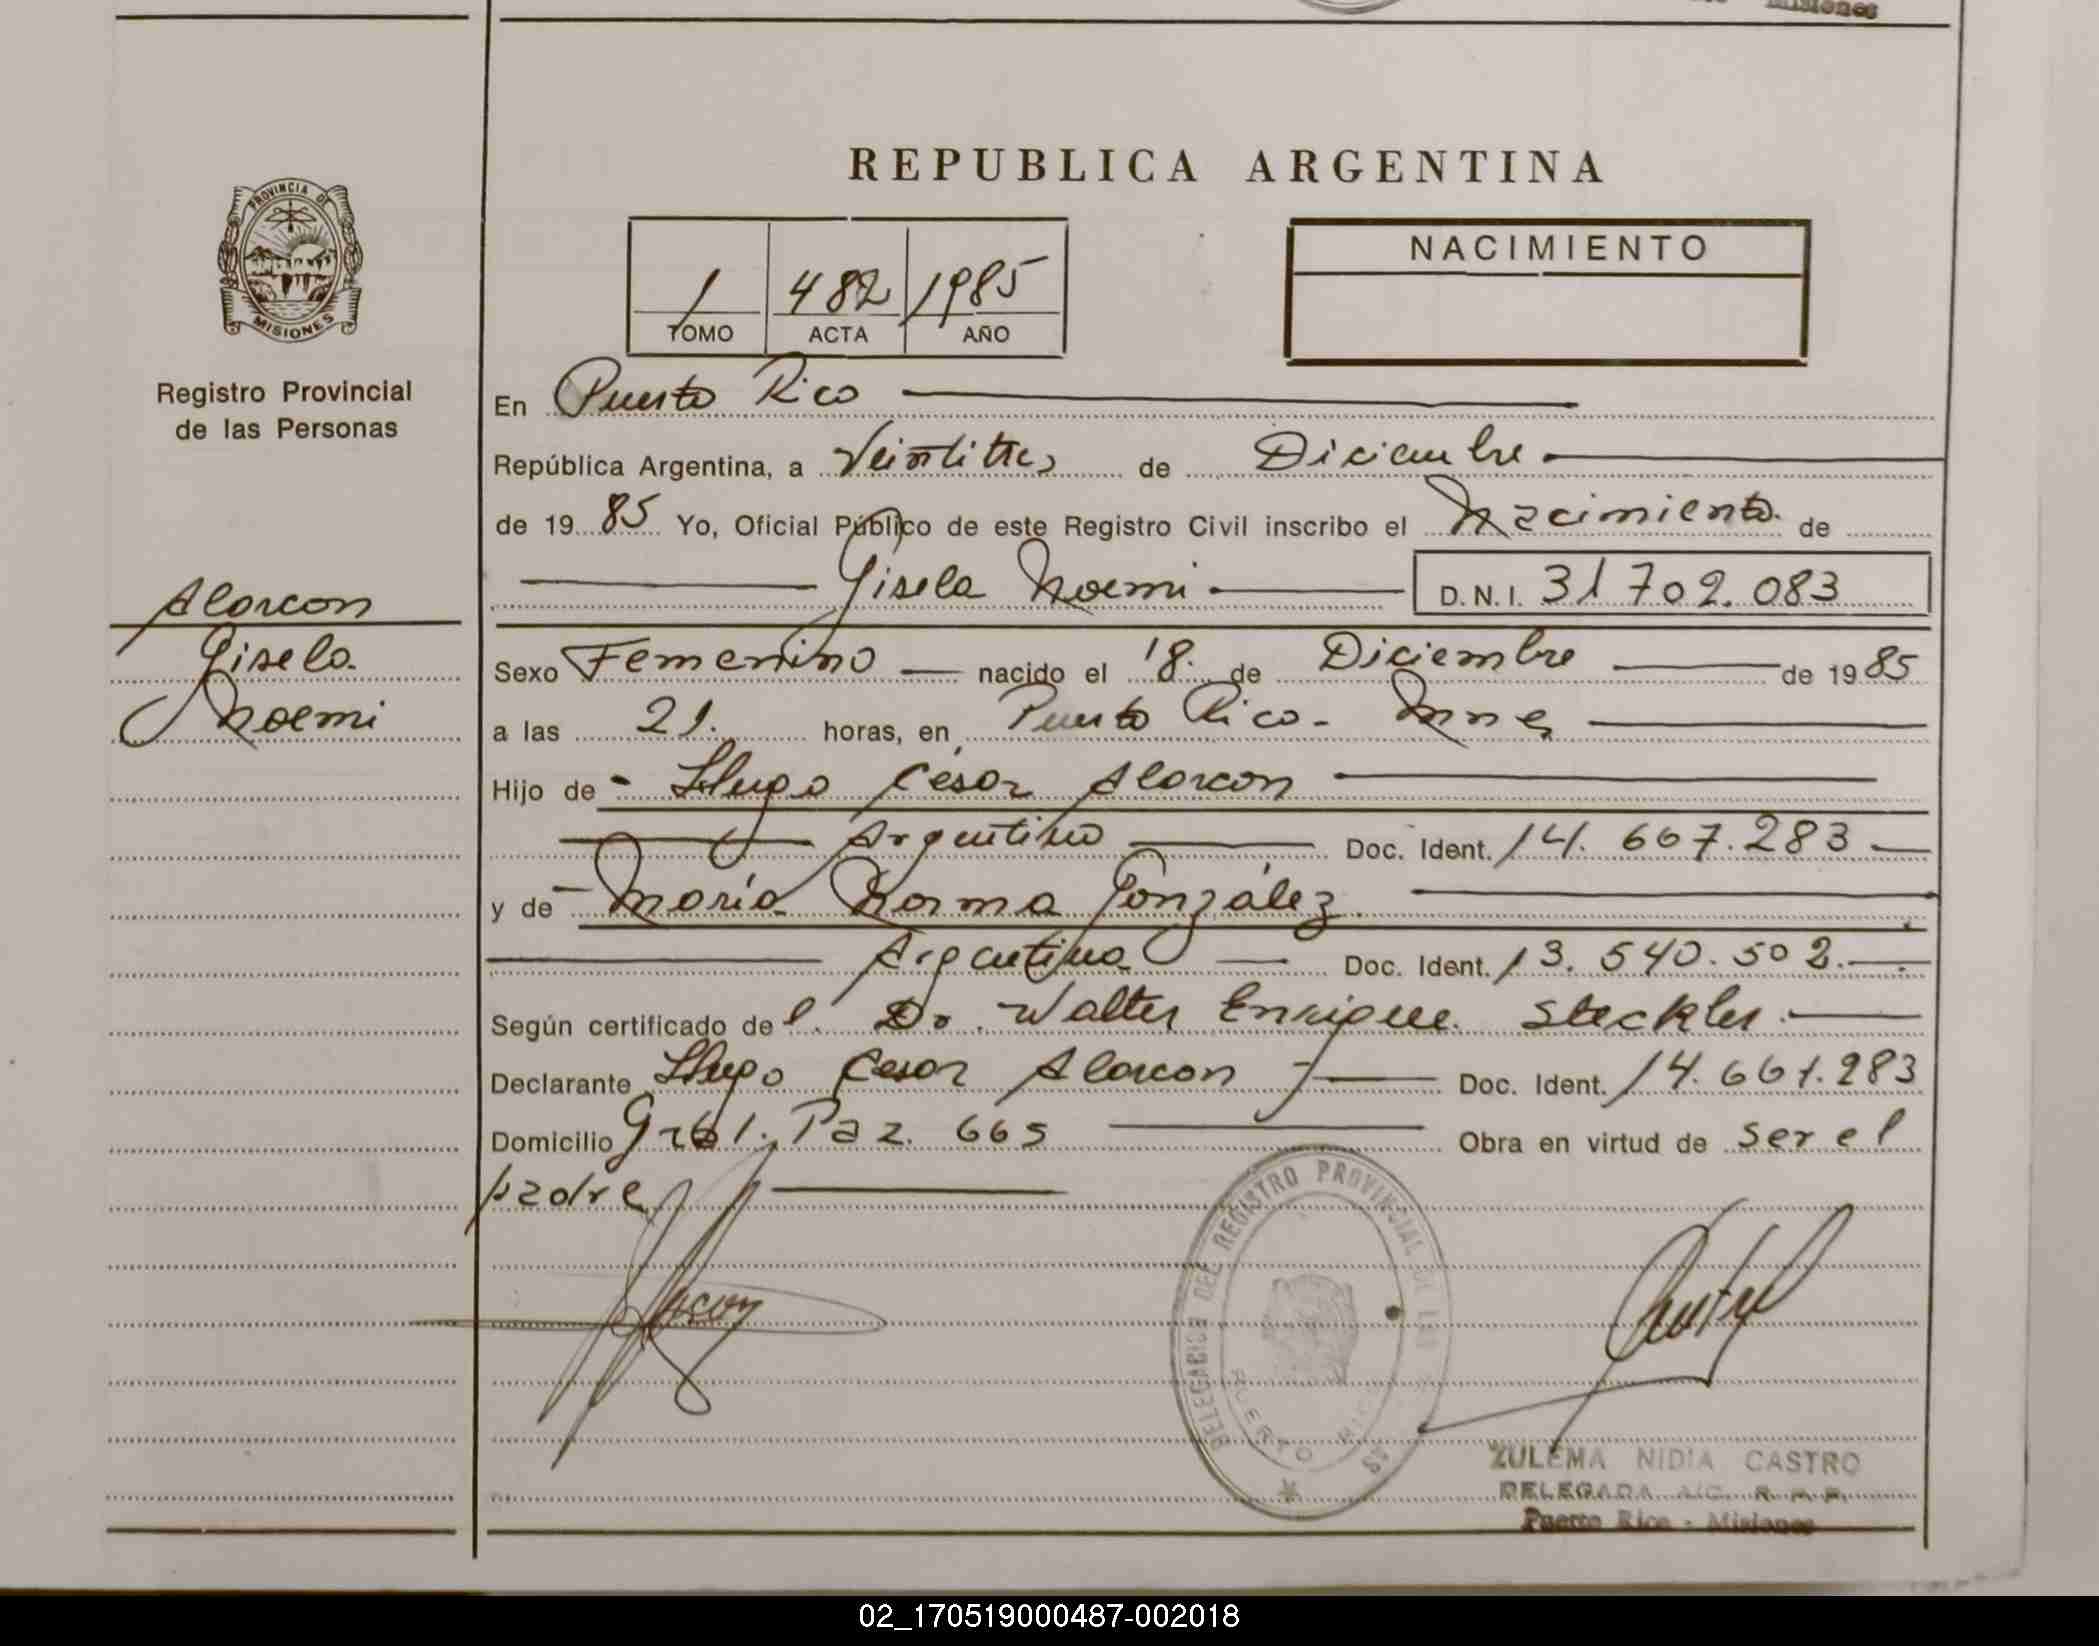 Misiones
REPUBLICA ARGENTINA
PROVINCIA DE
MISIONES
NACIMIENTO
1 482 1985
TOMO ACTA AÑO
Registro Provincial
de las Personas
En Puerto Rico
República Argentina, a Veintitres de Diciembre
de 1985 Yo, Oficial Público de este Registro Civil inscribo el Nacimiento de
Gisela Noemi D.N.I. 31 702.083
Alarcon
Gisela
Noemi
Sexo Femenino nacido el 18. de Diciembre de 1985
a las 21. horas, en Puerto Rico - Mnes
Hijo de - Hugo César Alarcon
Argentino Doc. Ident. 14. 667.283
y de - María Norma González
Argentina Doc. Ident. 13. 540. 502.
Según certificado del Dr. Walter Enrique Steckler.
Declarante Hugo Cesar Alarcon Doc. Ident. 14.667.283
Domicilio Gral. Paz. 665 Obra en virtud de ser el
padre
DELEGACION DEL REGISTRO PROVINCIAL DE LAS
PUERTO RICO
ZULEMA NIDIA CASTRO
DELEGADA A/C. R. P. P.
Puerto Rico - Misiones
02_170519000487-002018